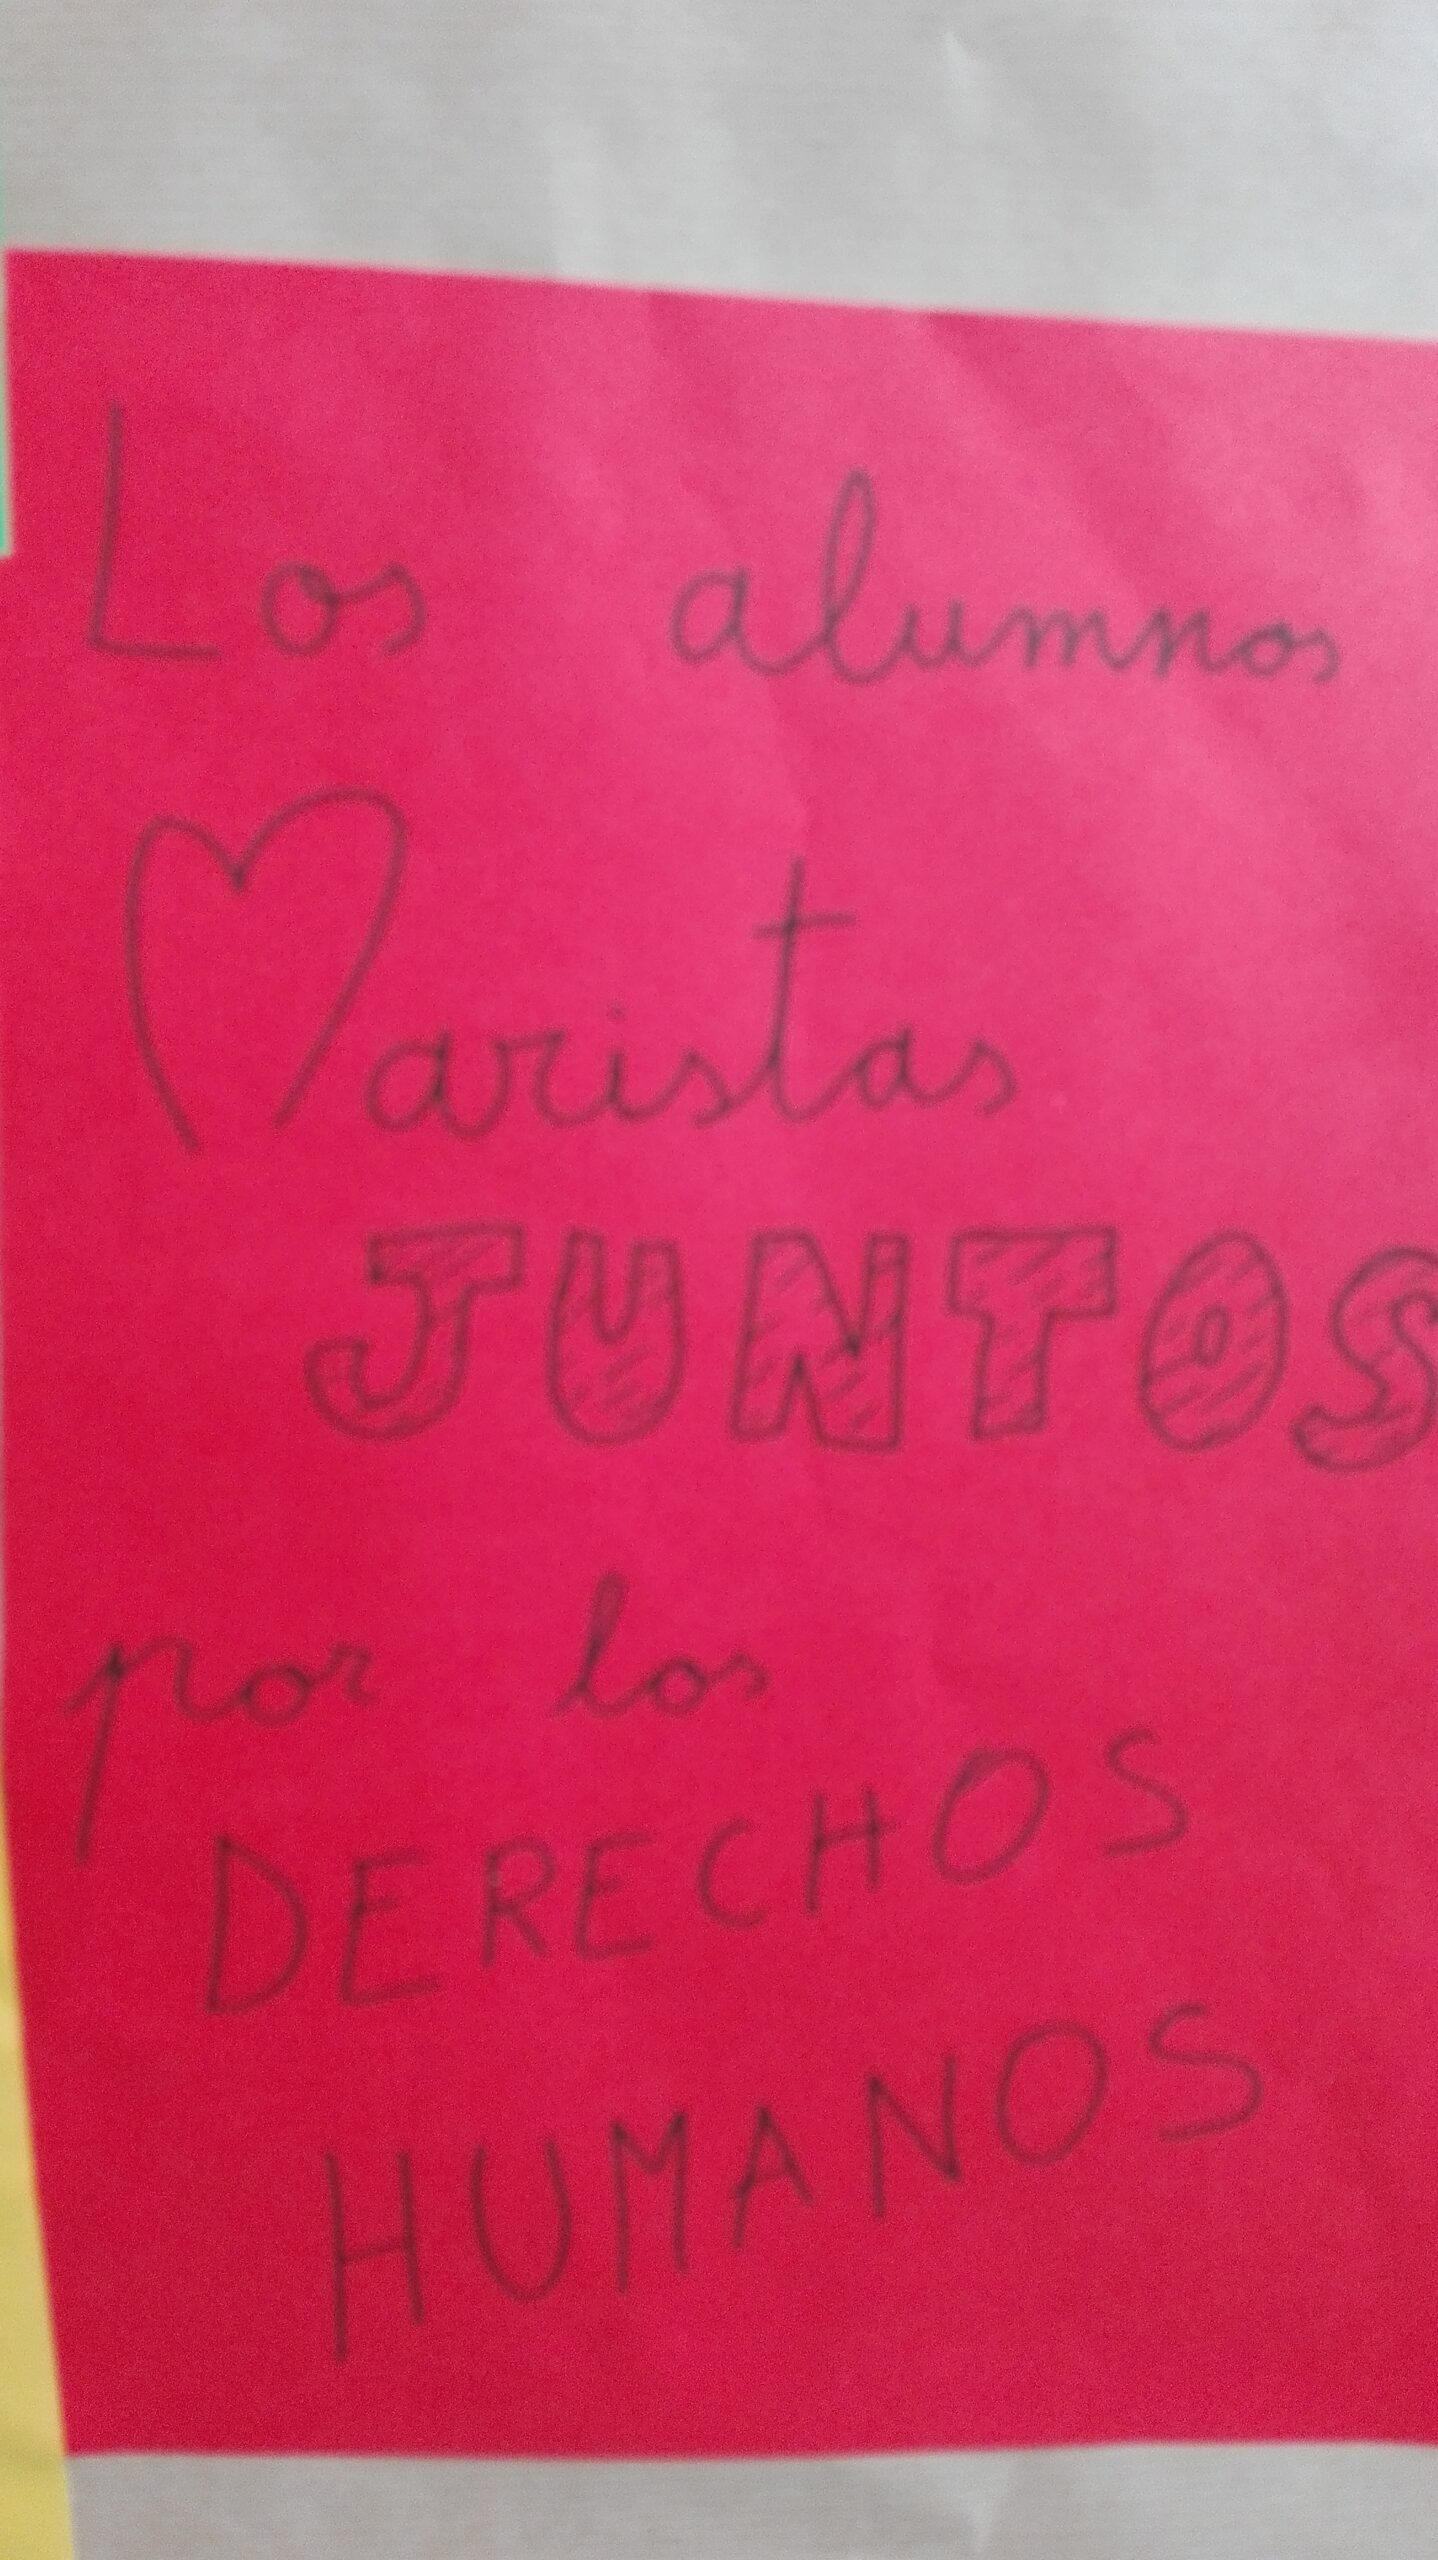 Los alumnos
Maristas
JUNTOS
por los
DERECHOS
HUMANOS